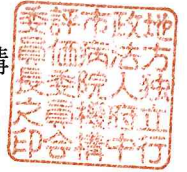 地方独立行
政法人府中
市病院機構
評価委員会
委員長之印